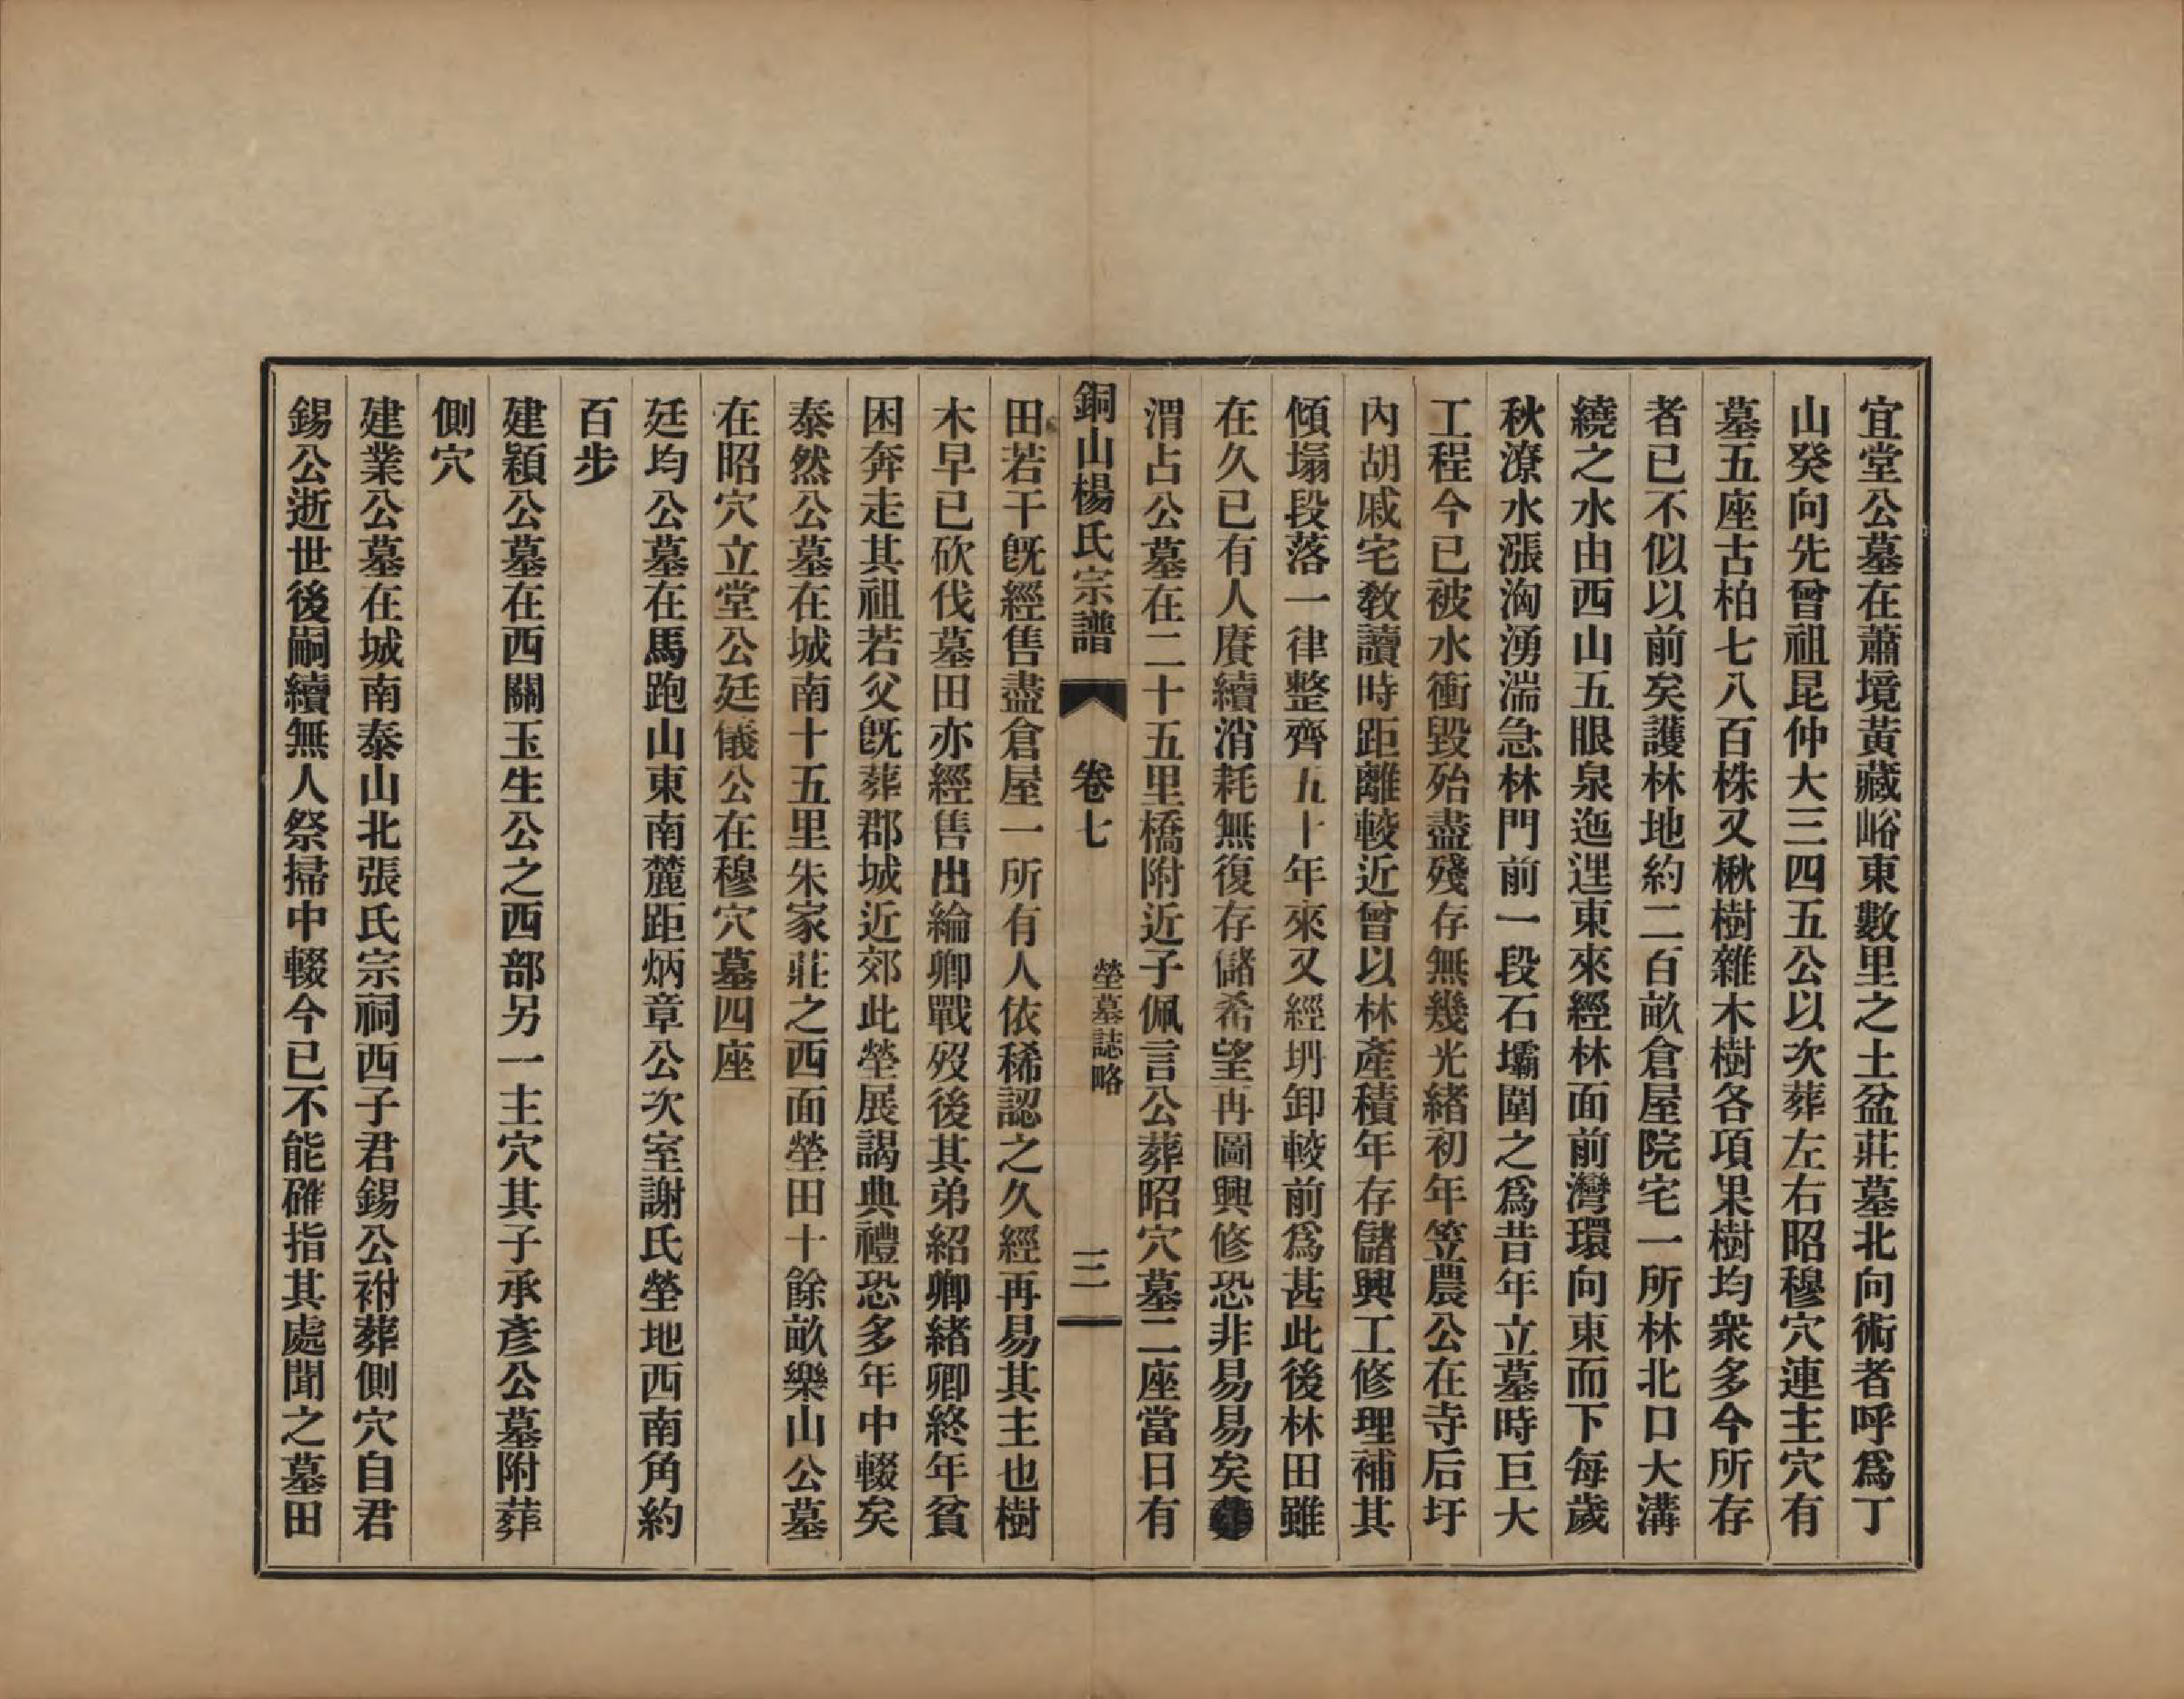 宜堂公墓在蕭境黃藏峪東數里之土盆莊墓北向術者呼爲丁
山癸向先曾祖昆仲大三四五公以次葬左右昭穆穴連主穴有
墓五座古柏七八百株又楸樹雜木樹各項果樹均衆多今所存
者已不似以前矣護林地約二百畝倉屋院宅一所林北口大溝
繞之水由西山五眼泉迤逕東來經林面前灣環向東而下每歲
秋潦水漲洶湧湍急林門前一段石壩圍之爲昔年立墓時巨大
工程今已被水衝毀殆盡殘存無幾光緒初年笠農公在寺后圩
內胡戚宅教讀時距離較近曾以林產積年存儲興工修理補其
傾塌段落一律整齊五十年來又經坍卸較前爲甚此後林田雖
在久已有人賡續消耗無復存儲希望再圖興修恐非易易矣
渭占公墓在二十五里橋附近子佩言公葬昭穴墓二座當日有
銅山楊氏宗譜 卷七 塋墓誌略 三
田若干旣經售盡倉屋一所有人依稀認之久經再易其主也樹
木早已砍伐墓田亦經售出綸卿戰歿後其弟紹卿緒卿終年貧
困奔走其祖若父旣葬郡城近郊此塋展謁典禮恐多年中輟矣
泰然公墓在城南十五里朱家莊之西面塋田十餘畝樂山公墓
在昭穴立堂公廷儀公在穆穴墓四座
廷均公墓在馬跑山東南麓距炳章公次室謝氏塋地西南角約
百步
建穎公墓在西關玉生公之西部另一主穴其子承彥公墓附葬
側穴
建業公墓在城南泰山北張氏宗祠西子君錫公祔葬側穴自君
錫公逝世後嗣續無人祭掃中輟今已不能確指其處聞之墓田